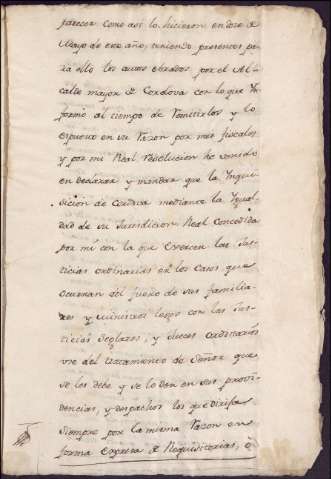 parecer como asi lo hicieron en doze de
Mayo de este año, teniendo presentes pa-
ra ello los autos obrados por el Al-
calde mayor de Cordova con lo que In-
formó al tiempo de remitirlos y lo
expuesto en su razon por mis fiscales
y por mi Real resolucion he venido
en declarar y mandar que la Inqui-
sicion de Cordova mediante la Igual-
dad de su Jurisdicion Real Concedida
por mi con la que exercen las Jus-
ticias ordinarias en los Casos que
ocurran del fuero de sus familia-
res y ministros legos con las Jus-
ticias seglares, y Jueces ordinarios
use del tratamiento de Señor que
se les debe y se lo den en sus provi-
dencias, y despachos los que dirija
siempre por la misma razon en
forma expresa de Requisitorias, ò